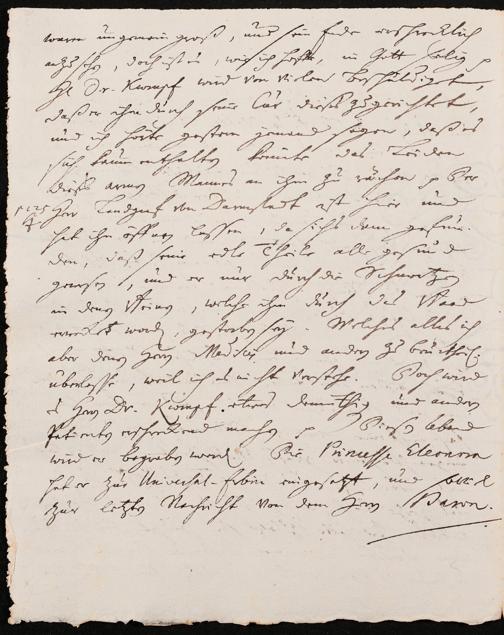 waren ungemein groß, und sein Ende erschrecklich
anzusehen, doch ist er, wie ich hoffe, in Gott selig p
H. Dr. Kämpf wird von vielen beschuldiget,
daß er ihn durch seine Cur dieß zugerichtet,
und ich hörte gestern jemand sagen, daß er
sich kaum enthalten könnte das Leiden
dieses armen Mannes an ihm zu rächen p Der
Herr Landgraf von Darmstadt ist hier und
hat ihn öffnen lassen, da sichs dann gefun-
den, daß seine edle Theile alle gesund
gewesen, und er nur durch die Schmertzen
in dem, welche ihm durch das
erwecket worden, gestorben sey. Welches alles ich
aber denen Herrn Medicis und andern zu beurtheilen
überlasse, weil ich es nicht verstehe. Doch wird
es Herrn Dr. Kämpf etwas demüthig und andere
Patienten erschreckend machen p Diesen Abend
wird er begraben werden. Die Prinzeß Eleonora
hat er zur Universal-Erbin eingesetzt, und so viel
zur letzten Nachricht von dem Herrn Baron.